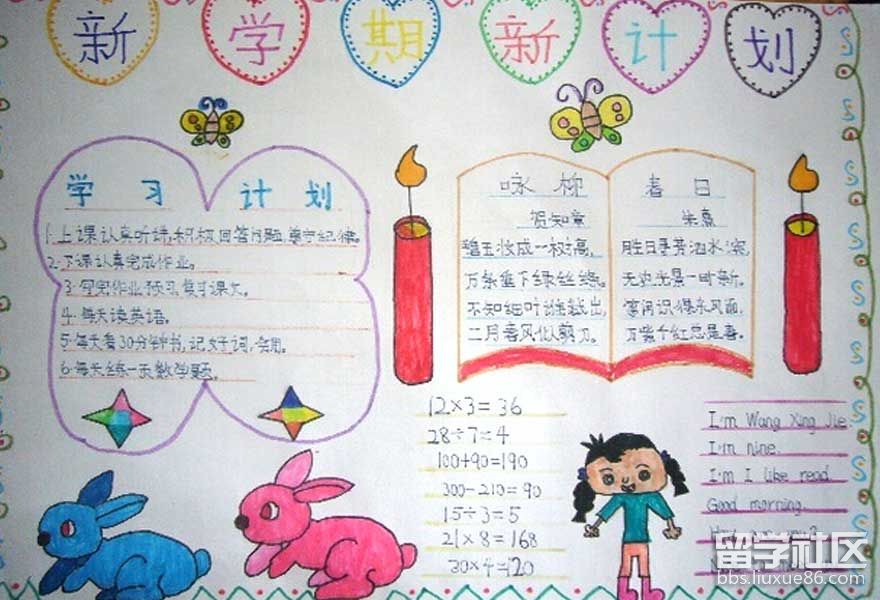 新学期新计划
学习 计划
1.上课认真听讲,积极回答问题,遵守纪律。
2.下课认真完成作业。
3.写完作业预习,复习课文。
4.每天读英语。
5.每天看30分钟书,记好词,会用。
6.每天练一页数学题。
咏柳
贺知章
碧玉妆成一树高,
万条垂下绿丝绦。
不知细叶谁裁出,
二月春风似剪刀。
春日
朱熹
胜日寻芳泗水滨,
无边光景一时新。
等闲识得东风面,
万紫千红总是春。
12×3=36
28÷7=4
100+90=190
300-210=90
15÷3=5
21×8=168
30×4=120
I'm Wang Xing Jie.
I'm nine.
I'm I like read.
Good morning.
留学社区
bbs.liuxue86.com